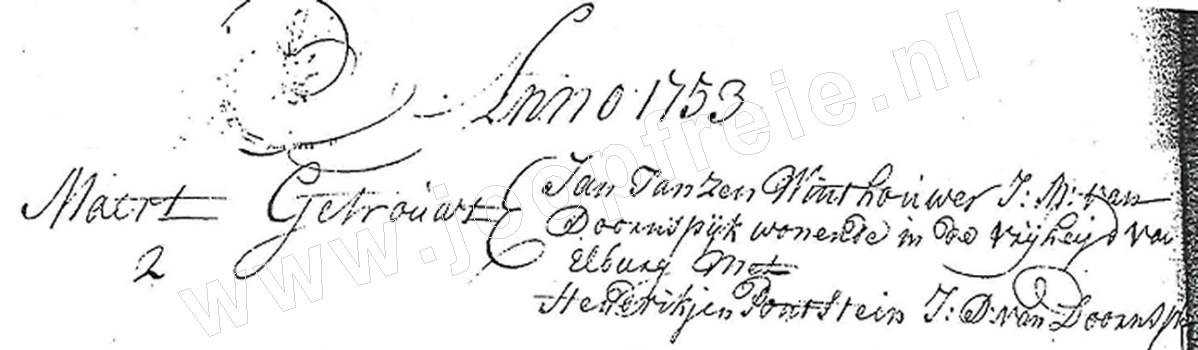 Anno 1753
Maert Getrouwt Jan Janzen Houthouwer J: M: van
2 Doornspijk wonende in de vrijheijd van
Elburg Met
Hendrikjen Pontstein J: D: van Doornsp
www.joopfreie.nl